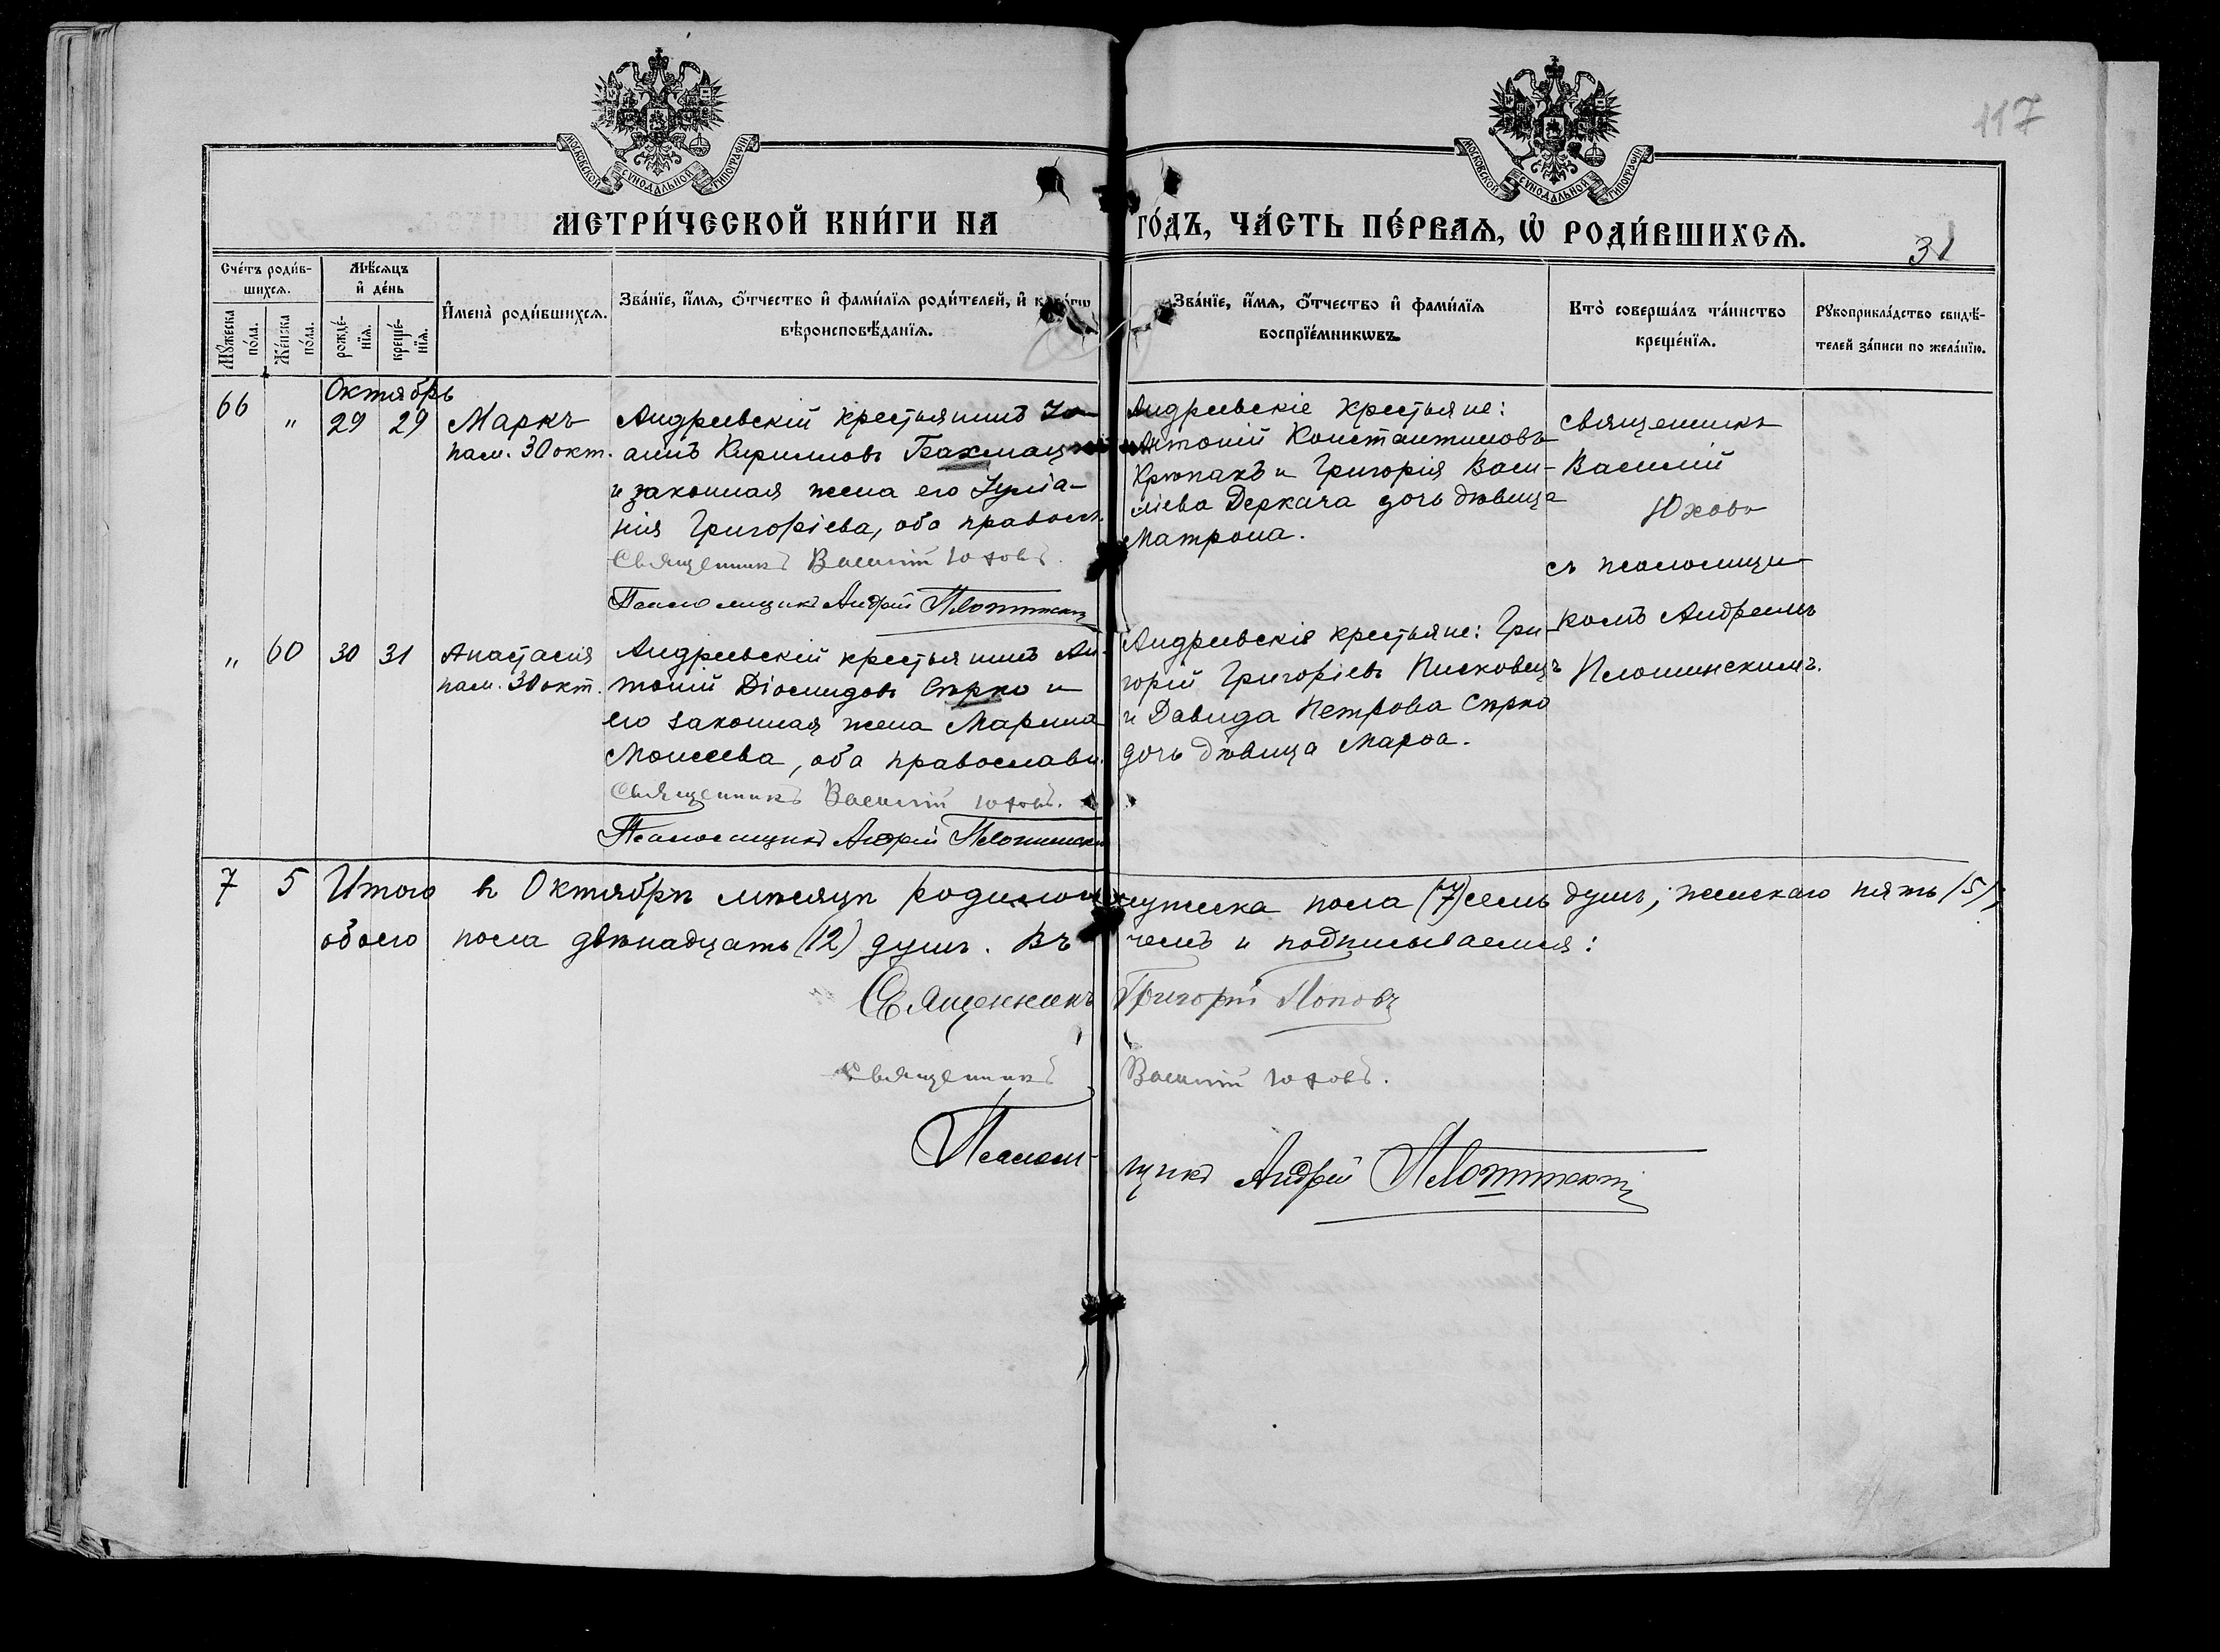 117
МОСКОВСКОЙ СѴНОДАЛЬНОЙ ТИПОГРАФІИ
МОСКОВСКОЙ СѴНОДАЛЬНОЙ ТИПОГРАФІИ
МЕТРИ́ЧЕСКОЙ КНИ́ГИ НА ГО́ДЪ, ЧА́СТЬ ПЕ́РВАѦ, Ѽ РОДИ́ВШИХСѦ.
31
Сче́тъ роди́в-
шихсѧ.
Мꙋ́жеска по́ла.
Же́нска по́ла.
Мѣ́сѧцъ
и҆ де́нь
рожде́-нїѧ.
креще́-нїѧ.
И҆мена̀ роди́вшихсѧ.
Зва́нїе, и҆́мѧ, ѻ҆́тчество и҆ фами́лїѧ роди́телей, и҆
вѣроисповѣ́данїѧ.
Зва́нїе, и҆́мѧ, ѻ҆́тчество и҆ фами́лїѧ
воспрїе́мникѡвъ.
Кто̀ соверша́лъ та́инство
креще́нїѧ.
Рꙋкоприкла́дство свидѣ́-
телей за́писи по жела́нїю.
Октябрь
66 " 29 29 Маркъ
пам. 30 окт.
Андреевскій крестьянинъ Іо-
аннъ Кирилловъ
и законная жена его Іуліа-
нія Григоріева, оба правосл.
Священникъ Василій Юховъ.
Псаломщикъ Андрей
Андреевскіе крестьяне:
Антоній Константиновъ
Крюпакъ и Григорія Васи-
ліева Деркача дочь дѣвица
Матрона.
Священникъ
Василій
Юховъ
съ псаломщи-
комъ Андреемъ
" 60 30 31 Анастасія
пам. 30 окт.
Андреевскій крестьянинъ Ан-
тоній Діомидовъ Сѣрко и
его законная жена Марина
Моисеева, оба православн.
Священникъ Василій Юховъ.
Псаломщикъ Андрей
Андреевскіе крестьяне: Гри-
горій Григоріевъ Писковецъ
и Давида Петрова Сѣрко
дочь дѣвица Марѳа.
7 5 Итого въ Октябрѣ мѣсяцѣ родилось мужеска пола (7) семь душъ, женскаго пять (5),
обоего пола двѣнадцать (12) душъ. Въ чемъ и подписываемся:
Священникъ Григорій Поповъ
Священникъ Василій Юховъ.
Псалом-
щикъ Андрей